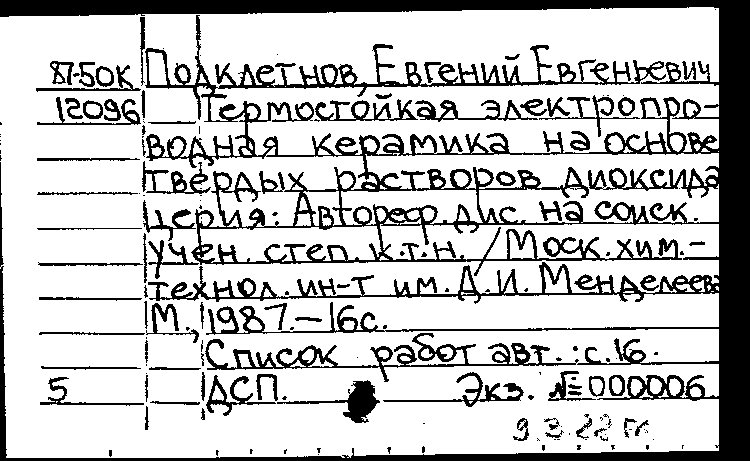 87-50К Подклетнов, Евгений Евгеньевич
12096 Термостойкая электропро-
водная керамика на основе
твердых растворов диоксида
церия: Автореф. дис. на соиск.
учен. степ. к.т.н. / Моск. хим.-
технол. ин-т им. Д.И. Менделеева
М., 1987. – 16с.
Список работ авт.: с.16.
5 ДСП. Экз. №=000006
9 3 22